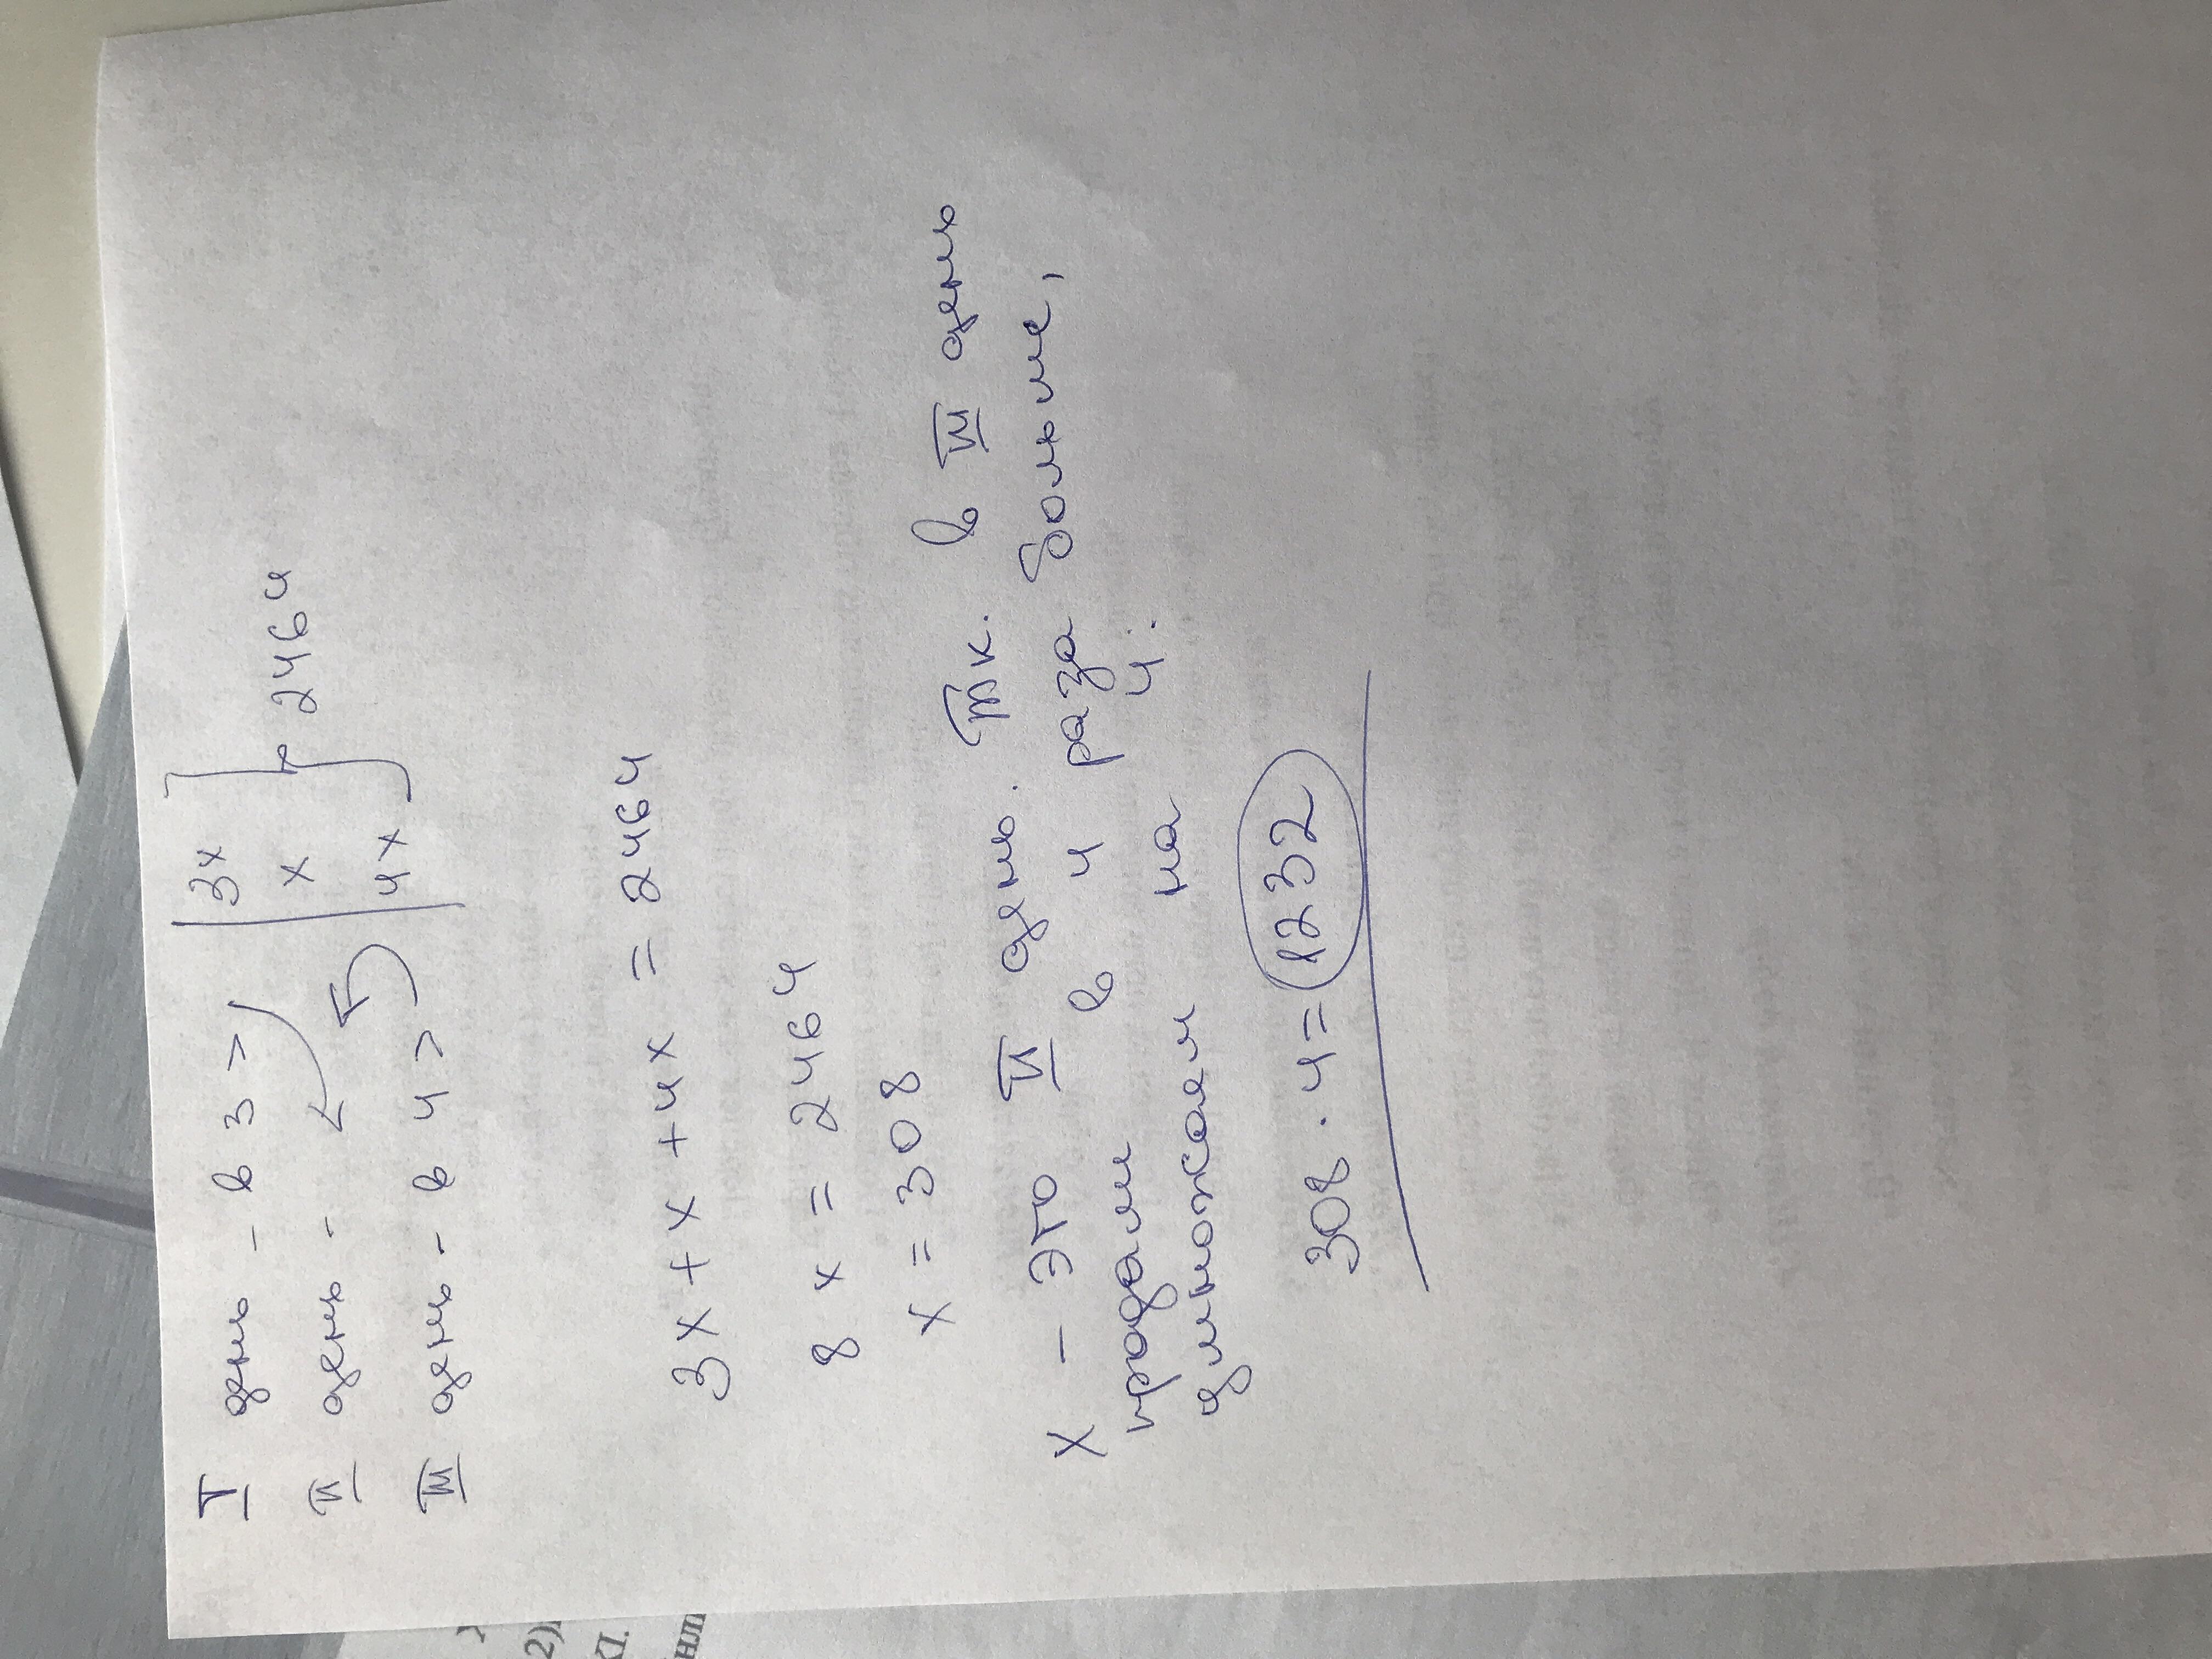 I день - в 3 > | 3x
II день - | x } 2464
III день - в 4 > | 4x
3x + x + 4x = 2464
8x = 2464
x = 308
x - это II день. Тк. в III день
продали в 4 раза больше,
умножаем на 4:
308 · 4 = 1232
2)
КП.
нл